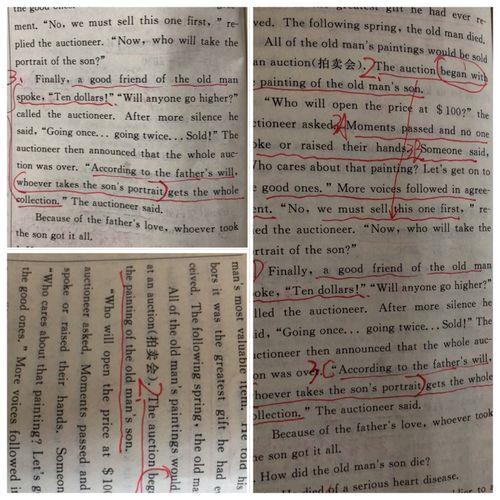 ment. "No, we must sell this one first," re-
plied the auctioneer. "Now, who will take the
portrait of the son?"
3.
Finally, a good friend of the old man
spoke, "Ten dollars!" "Will anyone go higher?"
called the auctioneer. After more silence he
said, "Going once... going twice... Sold!" The
auctioneer then announced that the whole auc-
tion was over. "According to the father's will,
whoever takes the son's portrait gets the whole
collection." The auctioneer said.
Because of the father's love, whoever took
the son got it all.
man's most valuable item. He told his
bors it was the greatest gift he had e
ceived. The following spring, the old ma
All of the old man's paintings would
at an auction(拍卖会). The auction beg
the painting of the old man's son.
"Who will open the price at $ 10
auctioneer asked, Moments passed and
spoke or raised their hands. Someon
"Who cares about that painting? Let's g
the good ones." More voices followed i
greatest gift he had ever re-
ved. The following spring, the old man died.
All of the old man's paintings would be sold
an auction(拍卖会). 2. The auction began with
painting of the old man's son.
"Who will open the price at $ 100?" the
ctioneer asked, 3A Moments passed and no one
oke or raised their hands. 3B Someone said,
Who cares about that painting? Let's get on to
e good ones." More voices followed in agree-
ent. "No, we must sell this one first," re-
ied the auctioneer. "Now, who will take the
rtrait of the son?"
Finally, a good friend of the old man
oke, "Ten dollars!" "Will anyone go higher?"
lled the auctioneer. After more silence he
id, "Going once... going twice... Sold!" The
ctioneer then announced that the whole auc-
on was over. 3C "According to the father's will,
hoever takes the son's portrait gets the whole
ollection." The auctioneer said.
Because of the father's love, whoever took
e son got it all.
. How did the old man's son die?
died of a serious heart disease.